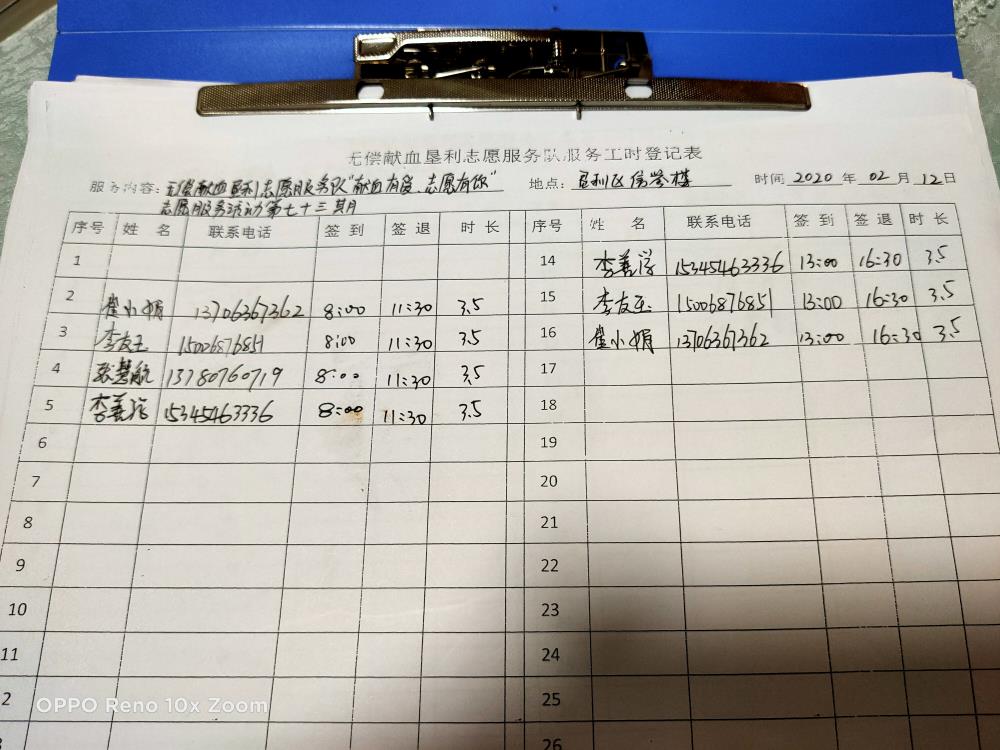 无偿献血垦利志愿服务队服务工时登记表
服务内容：无偿献血垦利志愿服务队"献血有爱 志愿有你" 地点： 时间 2020 年 02 月 12 日
志愿服务活动第七十三期
序号 姓 名 联系电话 签 到 签 退 时 长 序号 姓 名 联系电话 签 到 签 退 时 长
1 14 李善滨 15345463336 13:00 16:30 3.5
2 崔小娟 13706367362 8:00 11:30 3.5 15 李友玉 15006876851 13:00 16:30 3.5
3 李友玉 15006876851 8:00 11:30 3.5 16 崔小娟 13706367362 13:00 16:30 3.5
4 张慧航 13780760719 8:00 11:30 3.5 17
5 李善滨 15345463336 8:00 11:30 3.5 18
6 19
7 20
8 21
9 22
10 23
11 24
2 25
26
OPPO Reno 10x Zoom